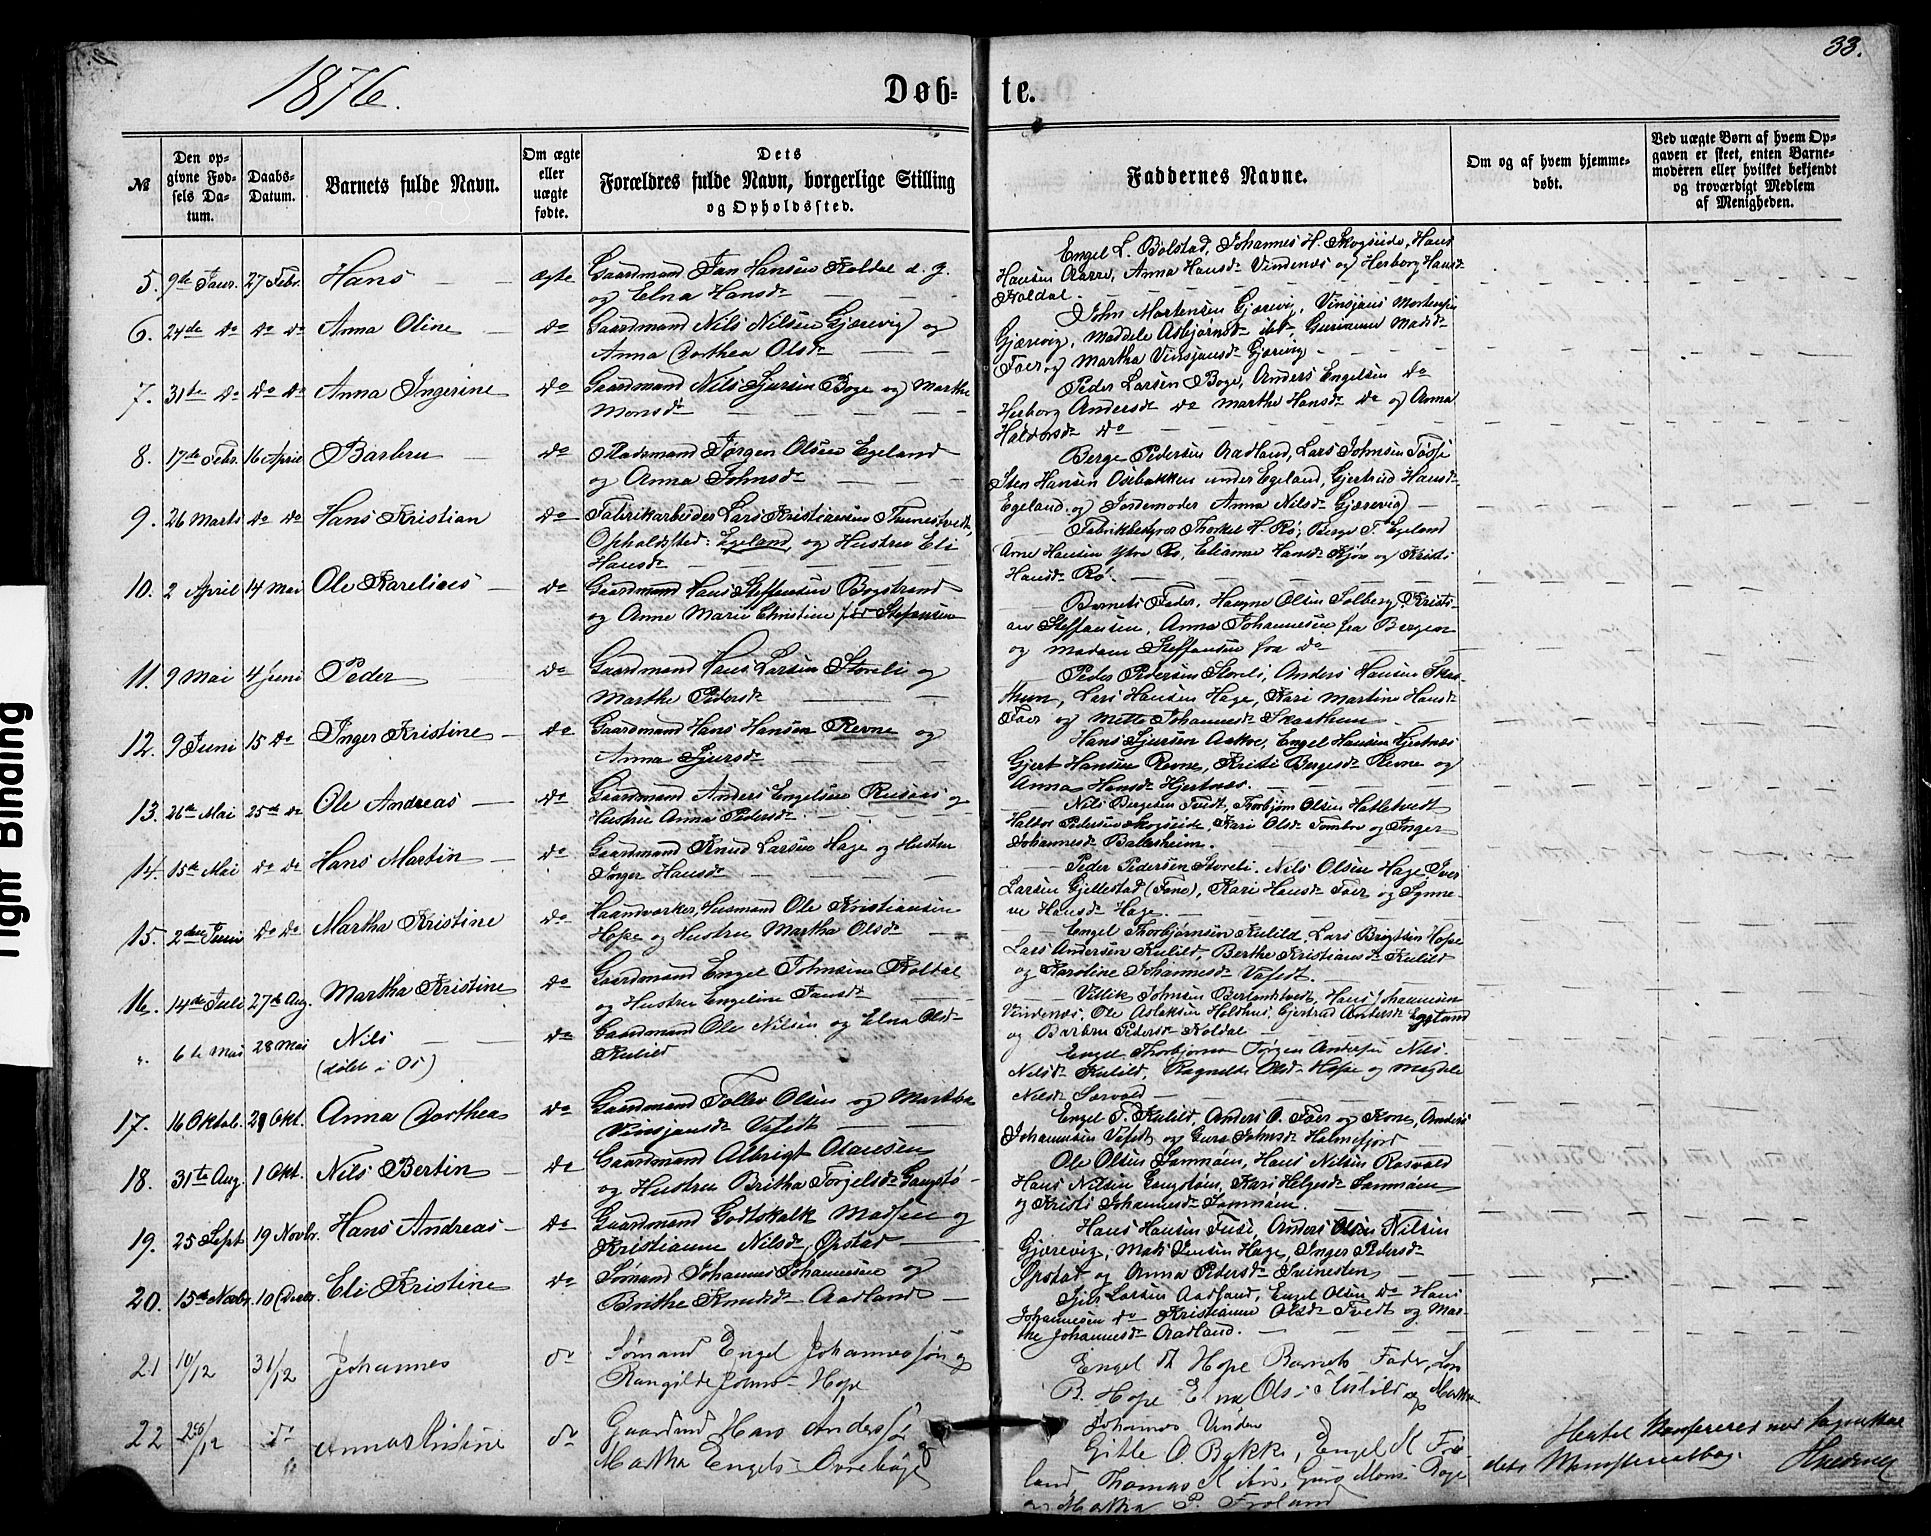 33.
1876.
Døb-
te.
№
Den op-
givne Fød-
sels Da-
tum.
Daabs-
Datum.
Barnets fulde Navn.
Om ægte
eller
uægte
fødte.
Dets
Forældres fulde Navn, borgerlige Stilling
og Opholdssted.
Faddernes Navne.
Om og af hvem hjemme-
døbt.
Ved uægte Børn af hvem Op-
gaven er skeet, enten Barne-
moderen eller hvilket bekjendt
og troværdigt Medlem
af Menigheden.
5. 9de Januar. 27 Febr. Hans ægte Gaardmand Jan Hansen Koldal d. y.
og Elna Hansd
Engel L. Bolstad, Johannes H. Skogseide, Hans
Hansen Aarre, Anna Hansd Vindenes og Herborg Hansd
Koldal.
6. 24de do do do Anna Oline do Gaardmand Nils Nilsen Gjærevig og
Anna Dorthea Olsd
John Mortensen Gjærevig, Vinsjans Mortensen
Gjærevig, Maddele Asbjørnsd ibd, Gurianne Madsd
Faer og Martha Vinsjansd Gjærevig
7. 31te do do do Anna Ingerine do Gaardmand Nils Sjursen Boge og Marthe
Monsd
Peder Larsen Boge, Anders Engelsen do
Herborg Andersd do Marthe Hansd do og Anna
Haldorsd do
8. 17de Febr. 16 April Barbru do Pladsmand Jørgen Olsen Egeland
og Anna Johnsd
Berge Pedersen Aadland, Lars Johnsen Tøsse
Sten Hansen Osebakken under Egeland, Gjertrud Hansd
Egeland og Jordemoder Anna Nilsd Gjærevig
9. 26 Marts do do Hans Kristian do Fabrikarbeider Lars Kristiansen Tunestvedt,
Opholdssted: Egeland, og Hustru Eli
Hansd
Fabrikbestyrer Thorkel H. Rø, Berge T. Egeland
Arne Hansen Ytre Rø, Elianne Hansd Kjøn og Kristi
Hansd Rø.
10. 2 April 14 Mai Ole Karelius do Gaardmand Hans Steffensen Bogstrand
og Anne Marie Christine før Stefansen
Barnets Fader, Haagne Olsen Solberg, Kristi-
an Steffensen, Anna Johannesen fra Bergen
og Madam Steffensen fra do
11. 9 Mai 4 Juni Peder do Gaardmand Hans Larsen Storeli og
Marthe Pedersd
Peder Pedersen Storeli, Anders Hansen Skaa-
thun, Lars Hansen Hage, Kari Martine Hansd
Faer og Mette Johannesd Skaathun
12. 9 Juni 15 do Inger Kristine do Gaardmand Hans Hansen Revne og
Anna Sjursd
Hans Sjursen Aakre, Engel Hansen Hjertnæs
Gjert Hansen Revne, Kristi Bergesd Revne og
Anna Hansd Hjertnæs.
13. 26de Mai 25de do Ole Andreas do Gaardmand Anders Engelsen Russøes og
Hustru Anna Pedersd
Nils Bergesen Tvedt, Thorbjørn Olsen Hatletvedt
Haldor Pedersen Skogseide, Kari Olsd Tombre og Inger
Johannesd Baltersheim.
14. 15de Mai do do Hans Martin do Gaardmand Knud Larsen Hage og Hustru
Inger Hansd
Peder Pedersen Storeli, Nils Olsen Hage, Iver
Larsen Gjellestad (Fane), Kari Hansd Faer og Synne-
ve Hansd Hage.
15. 2den Juni do do Martha Kristine do Haandverker, Husmand Ole Kristiansen
Hope og Hustru Martha Olsd
Engel Thorbjørnsen Kulild, Lars Brigtsen Hope
Lars Andersen Kulild, Berthe Kristiansd Kulild
og Karoline Johannesd Vafedt.
16. 14de Juli 27de Aug. Martha Kristine do Gaardmand Engel Johnsen Koldal
og Hustru Engeline Jansd
Villik Johnsen Berlandstvedt, Hans Johannesen
Vindenes, Ole Aslaksen Holdhus, Gjertrud Andersd Egeland
og Barbru Pedersd Koldal
" 6te Mai 28 Mai Nils
(døbt i Os) do Gaardmand Ole Nilsen og Elna Olsd
Kulild
Engel Thorbjørnsen Jørgen Andersen Nils
Nilsd Kulild, Ragnelda Olsd Hope og Magdele
Nilsd Sørvold
17. 16 Oktob. 29 Okt. Anna Dorthea do Gaardmand Tollev Olsen og Martha
Vinsjansd Vafedt
Engel T. Kulild, Anders O. Faer og Kone, Anders
Johannesen Vafedt og Guro Johnsd Halmefjord
18. 31te Aug. 1 Okt. Nils Bertin do Gaardmand Albrigt Olausen
og Hustru Britha Torgelsd Gangstø
Ole Olsen Samnøen, Hans Nilsen Rosvold
Hans Nilsen Engsøen, Kari Helgesd Samnøen
og Kristi Johannesd Samnøen.
19. 25 Sept 19 Novbr. Hans Andreas do Gaardmand Godtskalk Madsen og
Kristianne Nilsd Opstad
Hans Hansen Fuse, Anders Olsen Nilsen
Gjærevig, Mads Jensen Hage, Inger Pedersd
Opstad og Anna Pedersd Sveinesten
20. 15de Novbr. 10 Decbr. Eli Kristine do Sømand Johannes Johannesen og
Brithe Knudsd Aadland
Gjer. Larsen Aadland, Engel Olsen do Hans
Johannesen do Kristianne Olsd Tvedt og Mar-
the Johannesd Aadland.
21 10/12 31/12 Johannes do Sømand Engel Johannessøn og
Rangilde Johns Hope
Engel Th Hope Barnets Fader, Lars
B. Hope Elna Ols Kulild og Martha
Johannes Vinden
22 26/12 do Anna Kristine do Gaardmd Hans Anderssøn og
Martha Engels Øvrebøge
Gitle O Bakke, Engel K Frø
land, Thomas K ibn, Guro Mons Boge
og Martha P. Frøland
Hertil konfereret med Sognekal
dets Ministerialbog.